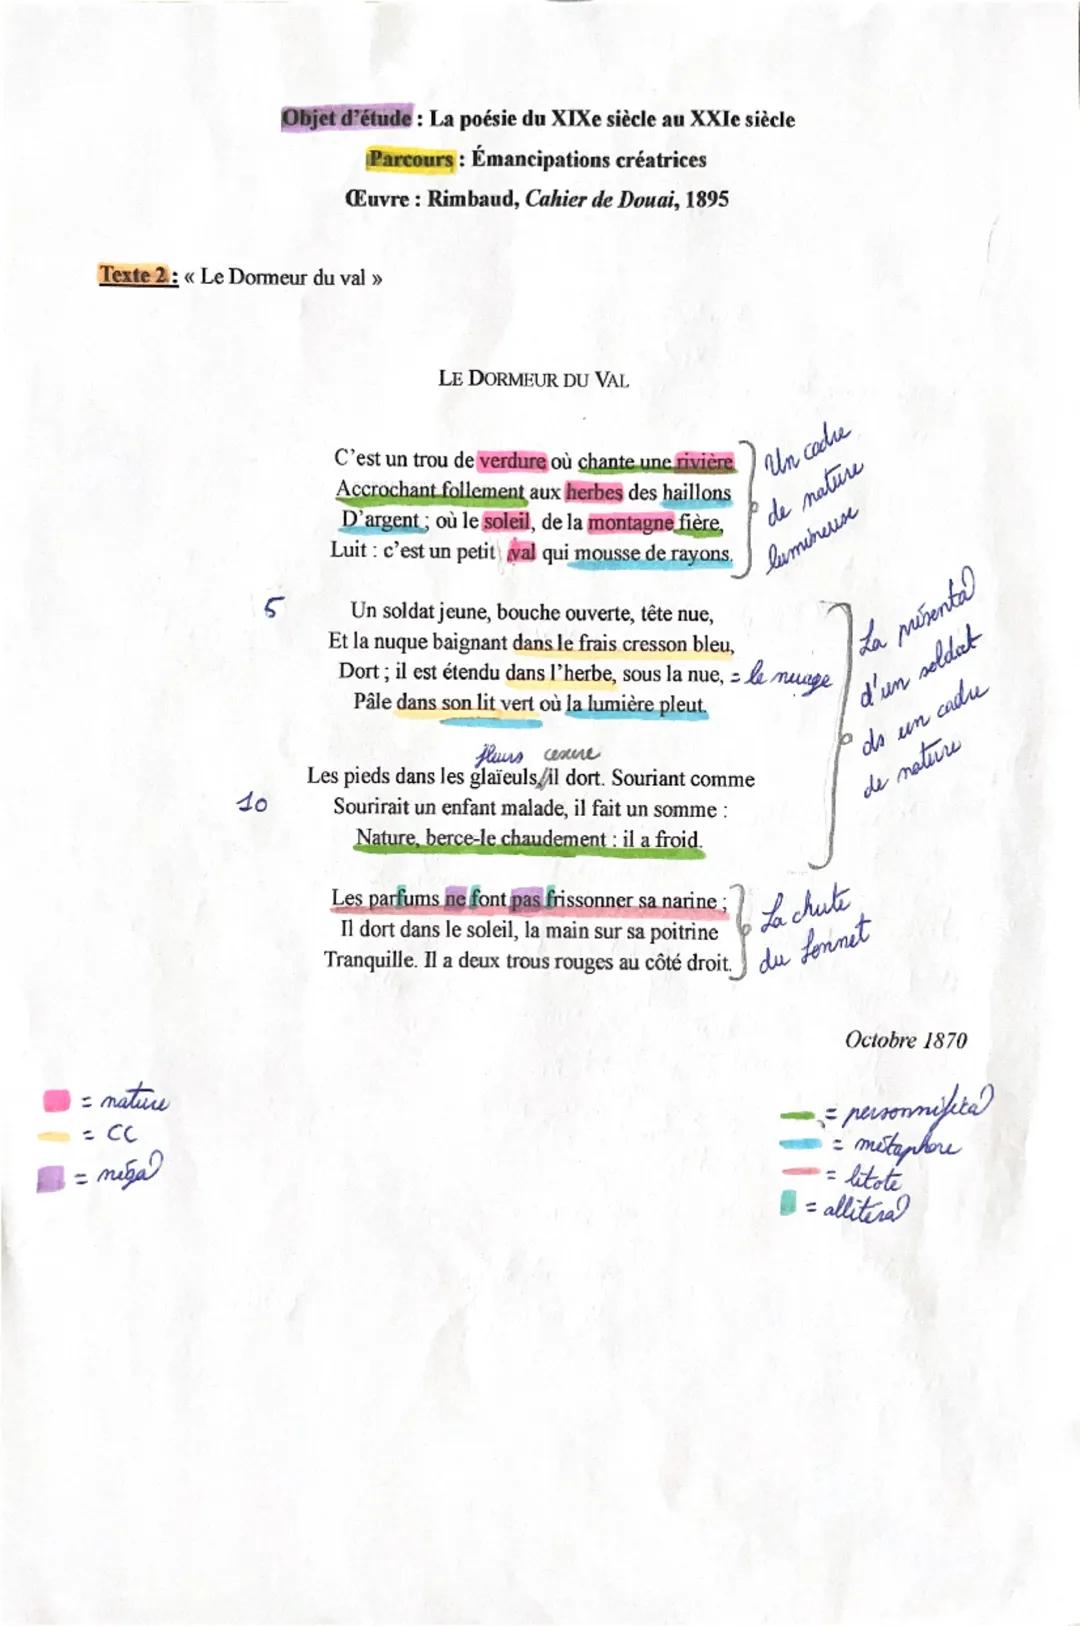 Objet d'étude : La poésie du XIXe siècle au XXIe siècle
Parcours : Émancipations créatrices
Œuvre : Rimbaud, Cahier de Douai, 1895
Texte 2 : « Le Dormeur du val »
LE DORMEUR DU VAL
C'est un trou de verdure où chante une rivière
Accrochant follement aux herbes des haillons
D'argent ; où le soleil, de la montagne fière,
Luit : c'est un petit val qui mousse de rayons.
Un cadre
de nature
lumineuse
5
Un soldat jeune, bouche ouverte, tête nue,
Et la nuque baignant dans le frais cresson bleu,
Dort ; il est étendu dans l'herbe, sous la nue, = le nuage
Pâle dans son lit vert où la lumière pleut.
La présenta°
d'un soldat
ds un cadre
de nature
fleurs cesure
Les pieds dans les glaïeuls,/il dort. Souriant comme
10
Sourirait un enfant malade, il fait un somme :
Nature, berce-le chaudement : il a froid.
Les parfums ne font pas frissonner sa narine ;
Il dort dans le soleil, la main sur sa poitrine
Tranquille. Il a deux trous rouges au côté droit.
La chute
du sonnet
Octobre 1870
= nature
= CC
= néga°
= personnifica°
= métaphore
= litote
= allitéra°